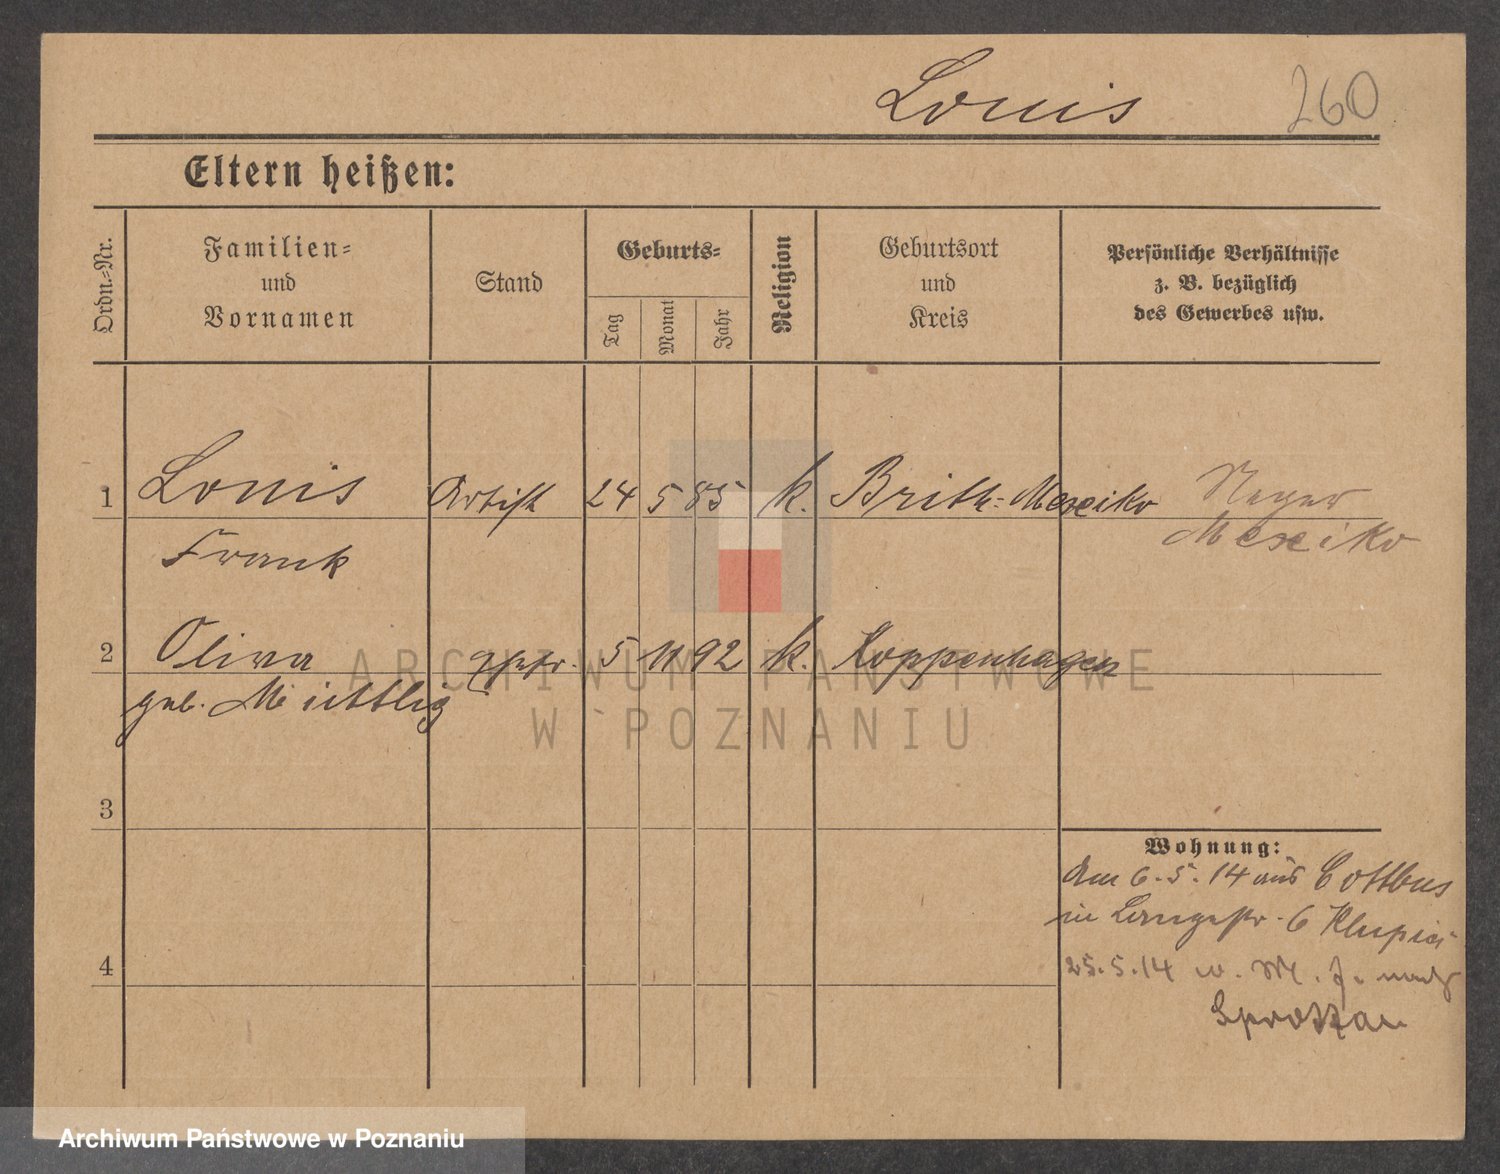 Louis 260
Eltern heißen:
Ordn.-Nr.
Familien-
und
Vornamen
Stand
Geburts-
Tag
Monat
Jahr
Religion
Geburtsort
und
Kreis
Persönliche Verhältnisse
z. B. bezüglich
des Gewerbes usw.
1 Louis Artist 24 5 85 k. Brith.-Mexiko Neger
Frank Mexiko
2 Oliva 5 11 92 k. Koppenhagen
geb. Miettlig
ARCHIWUM PAŃSTWOWE
W POZNANIU
3
Wohnung:
Am 6.5.14 aus Cottbus
in Langestr. 6
4
25.5.14 w. M. F. nach
Sprottau
Archiwum Państwowe w Poznaniu